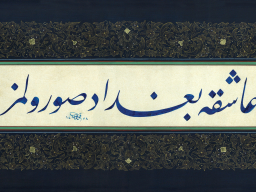 عاشقه بغداد صورولمز